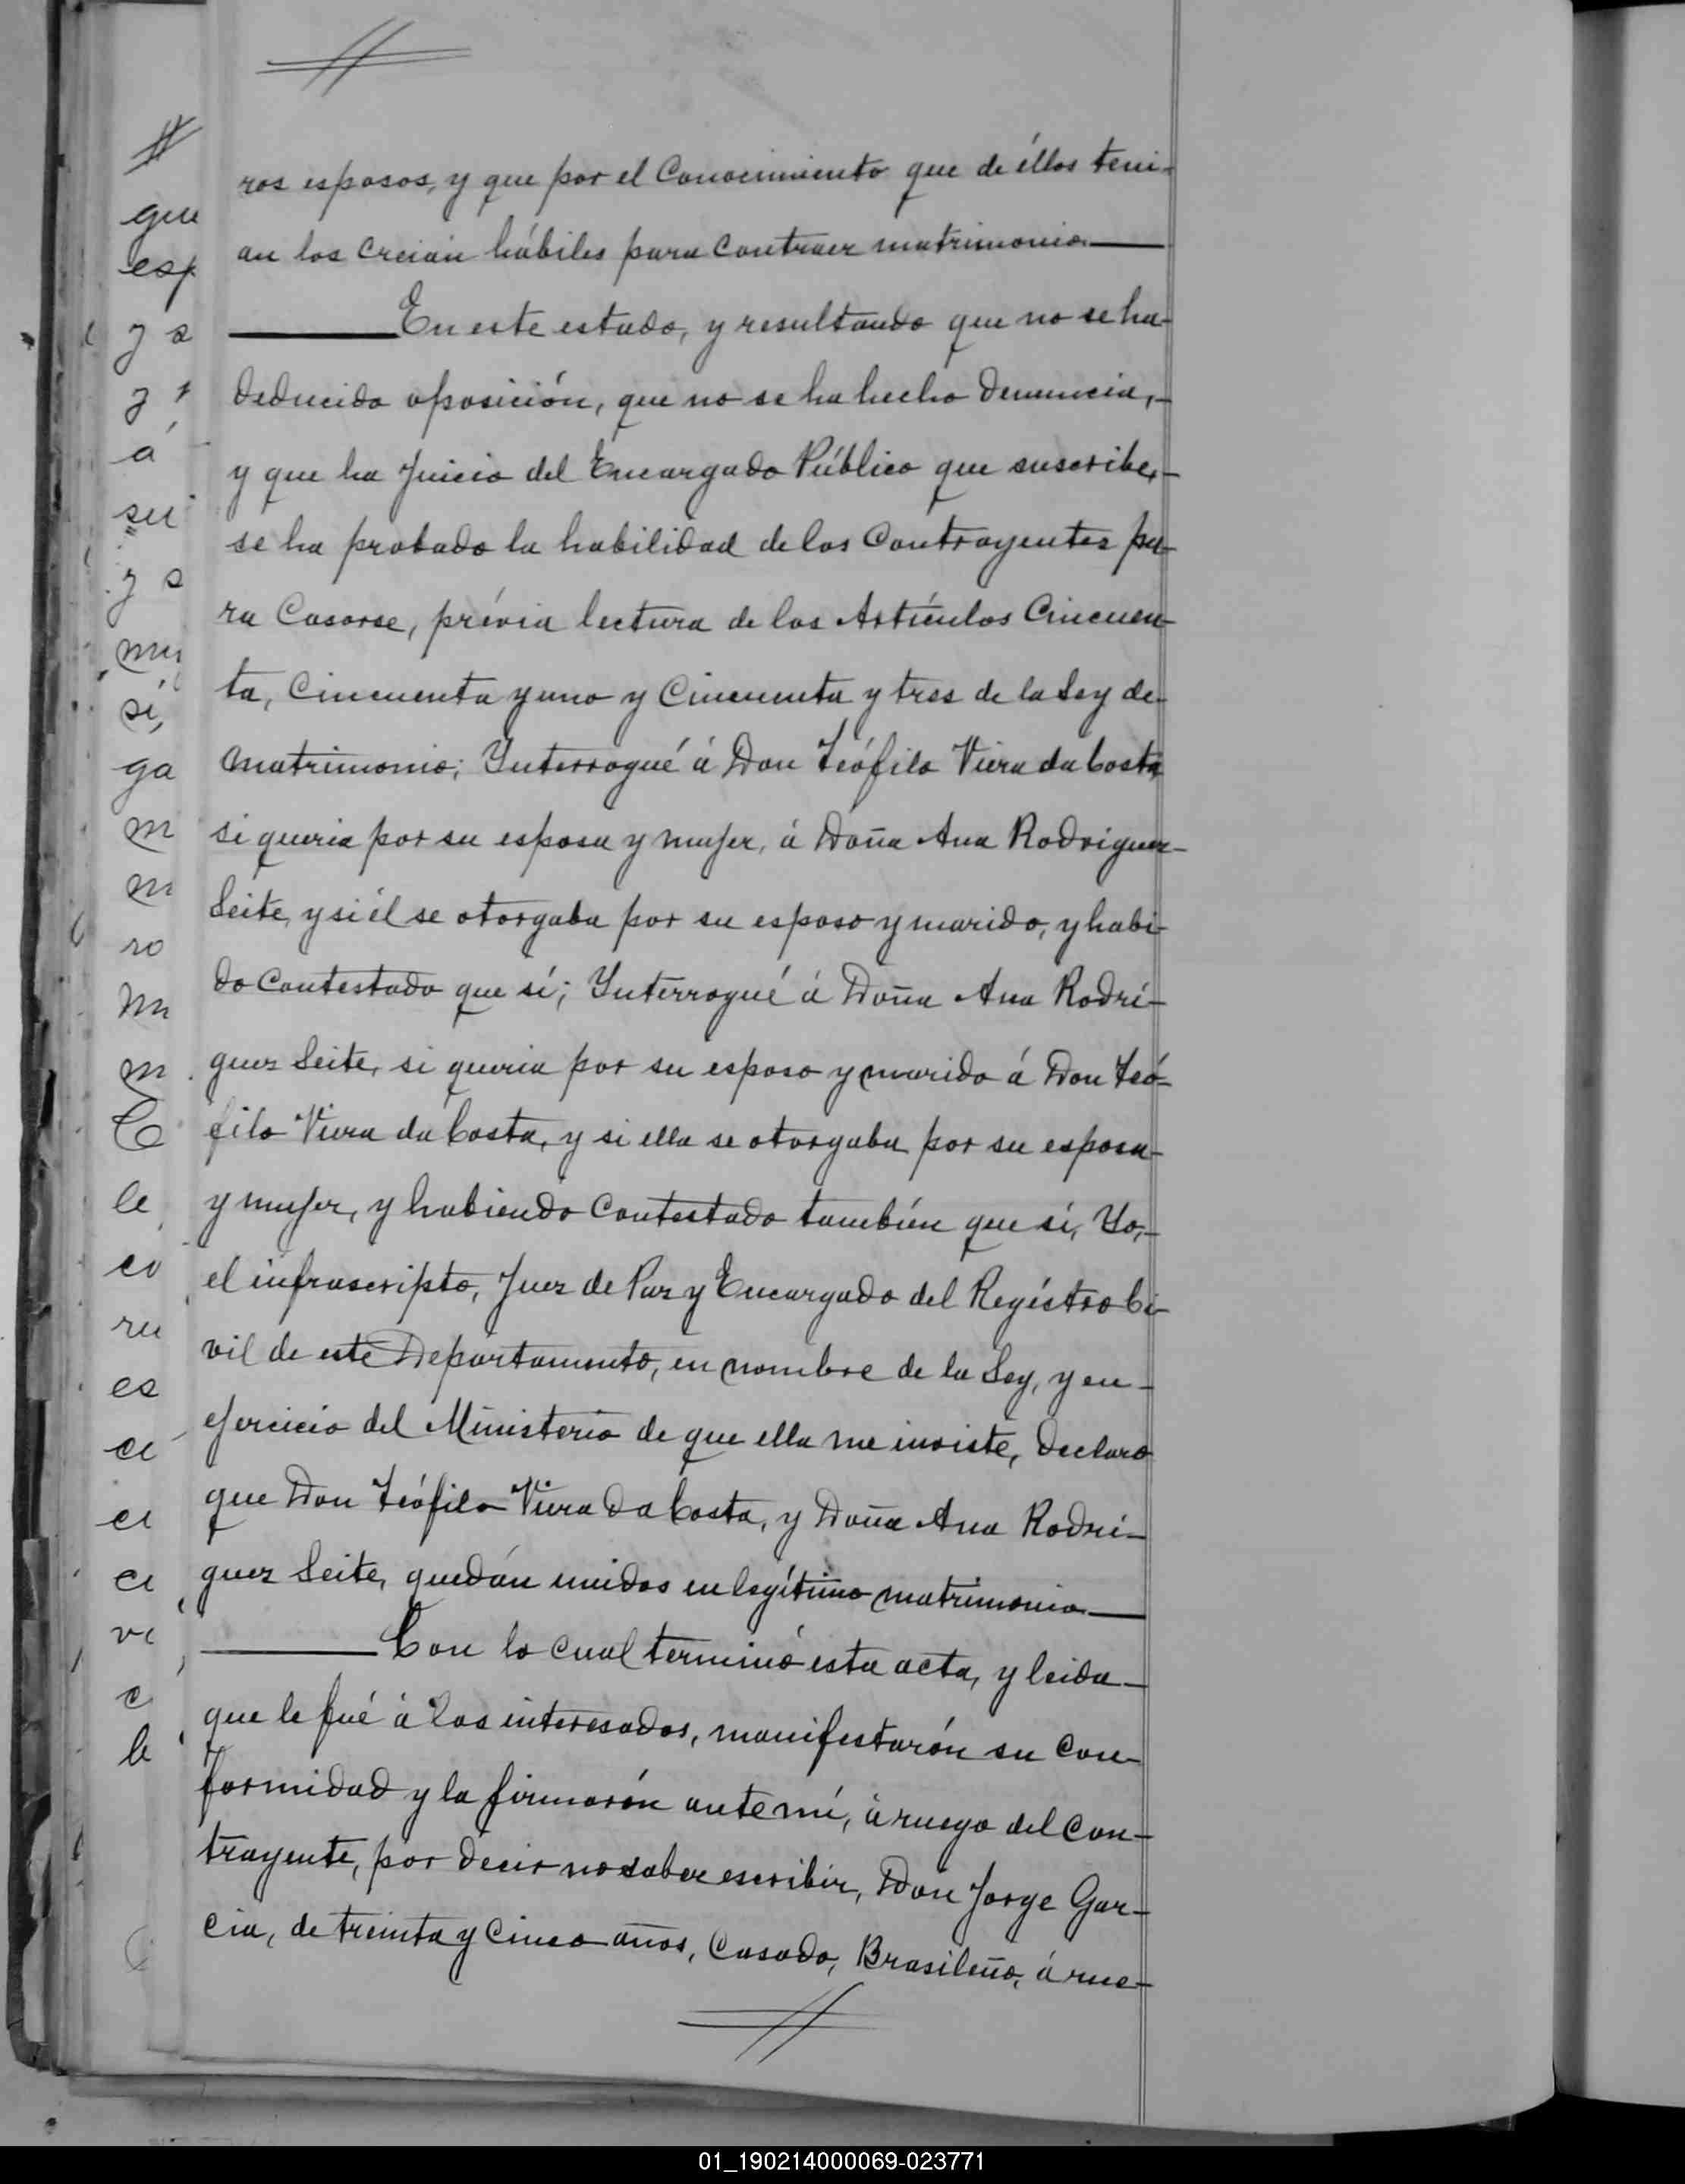 ros esposos, y que por el Conocimiento que de éllos teni-
an los Creián hábiles para Contraer matrimonio.
En este estado, y resultando que no se ha-
deducido oposición, que no se ha hecho denuncia,-
y que ha Juicio del Encargado Público que suscribe,-
se ha probado la habilidad de los Contrayentes pa-
ra Casarse, prévia lectura de los Artículos Cincuen-
ta, Cincuenta y uno y Cincuenta y tres de la Ley de-
matrimonio; Ynterrogué á Don Teófilo Viera da Costa
si queria por su esposa y mujer, á Doña Ana Rodriguez-
Leite, y si él se otorgaba por su esposo y marido, y habi-
do Contestado que sí; Ynterrogué á Doña Ana Rodrí-
guez Leite, si queria por su esposo y marido á Don Teó-
filo Viera da Costa, y si ella se otorgaba por su esposa-
y mujer, y habiendo Contestado también que sí, Yo,-
el infrascripto, Juez de Paz y Encargado del Regístro Ci-
vil de este Departamento, en nombre de la Ley, y en-
ejercicio del Ministerio de que ella me inviste, declaro
que Don Teófilo Viera da Costa, y Doña Ana Rodrí-
guez Leite, quedán unidos en legítimo matrimonio.
Con lo cual terminó esta acta, y leida-
que le fué á los interesados, manifestarón su Con-
formidad y la firmarón ante mí, á ruego del Con-
trayente, por decir no saber escribir, Don Jorge Gar-
cia, de treinta y Cinco años, Casado, Brasileño, á rue-
que
esp
y
y
á
su
y
sí,
ga
m
m
ro
m
le
ci
ru
es
ci
ci
ci
vi
c
01_190214000069-023771